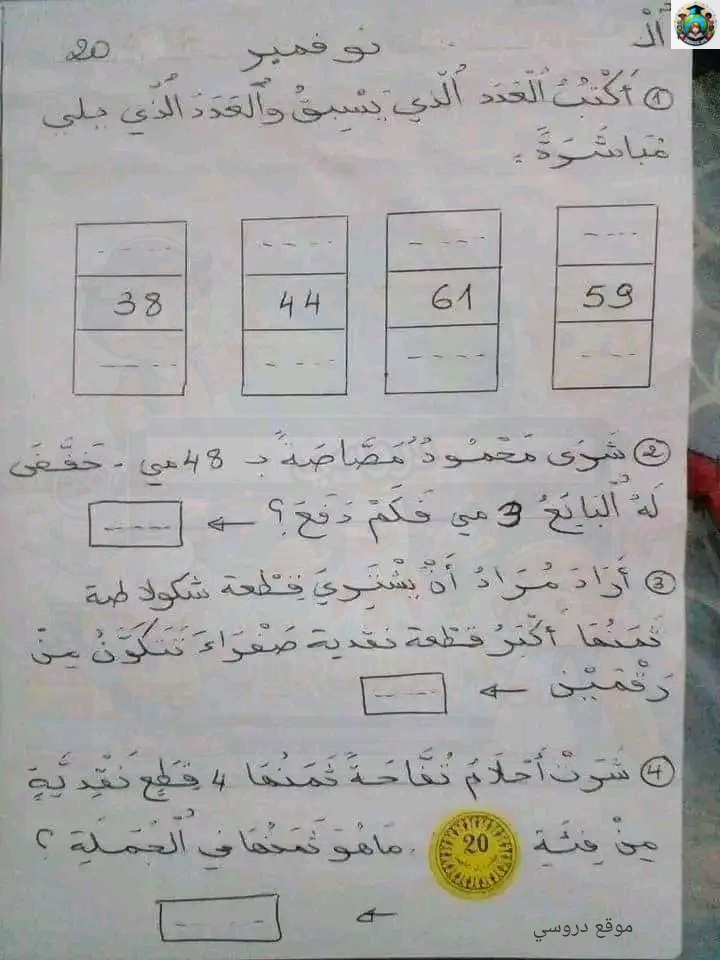 نوفمبر 20
① أَكْتُبُ الْعَدَد الَّذِي يَسْبِقُ وَالْعَدَدَ الَّذِي يلي
مُبَاشَرَةً.
59 61 44 38
② شَرَى مَحْمُودُ مَصَّاصَةً بـ 48 مي - خَفَّضَ
لَهُ الْبَائِعُ 3 مي فَكَمْ دَفَعَ؟ ←
③ أَرَادَ مُرَادُ أَنْ يَشْتَرِيَ قِطْعة شكولاطة
ثَمَنُهَا أَكْبَرُ قطْعة نقدية صَفْرَاءَ تَتَكَوَّنُ مِنْ
رَقْمَيْنِ ←
④ شَرَتْ أَحْلَامُ تُفَّاحَةً ثَمَنُهَا 4 قِطَعٍ نَقْدِيَّةٍ
مِنْ فِئَةِ 20 . مَا هُوَ ثَمَنُهَا فِي الْجُمْلَةِ ؟
←
موقع دروسي